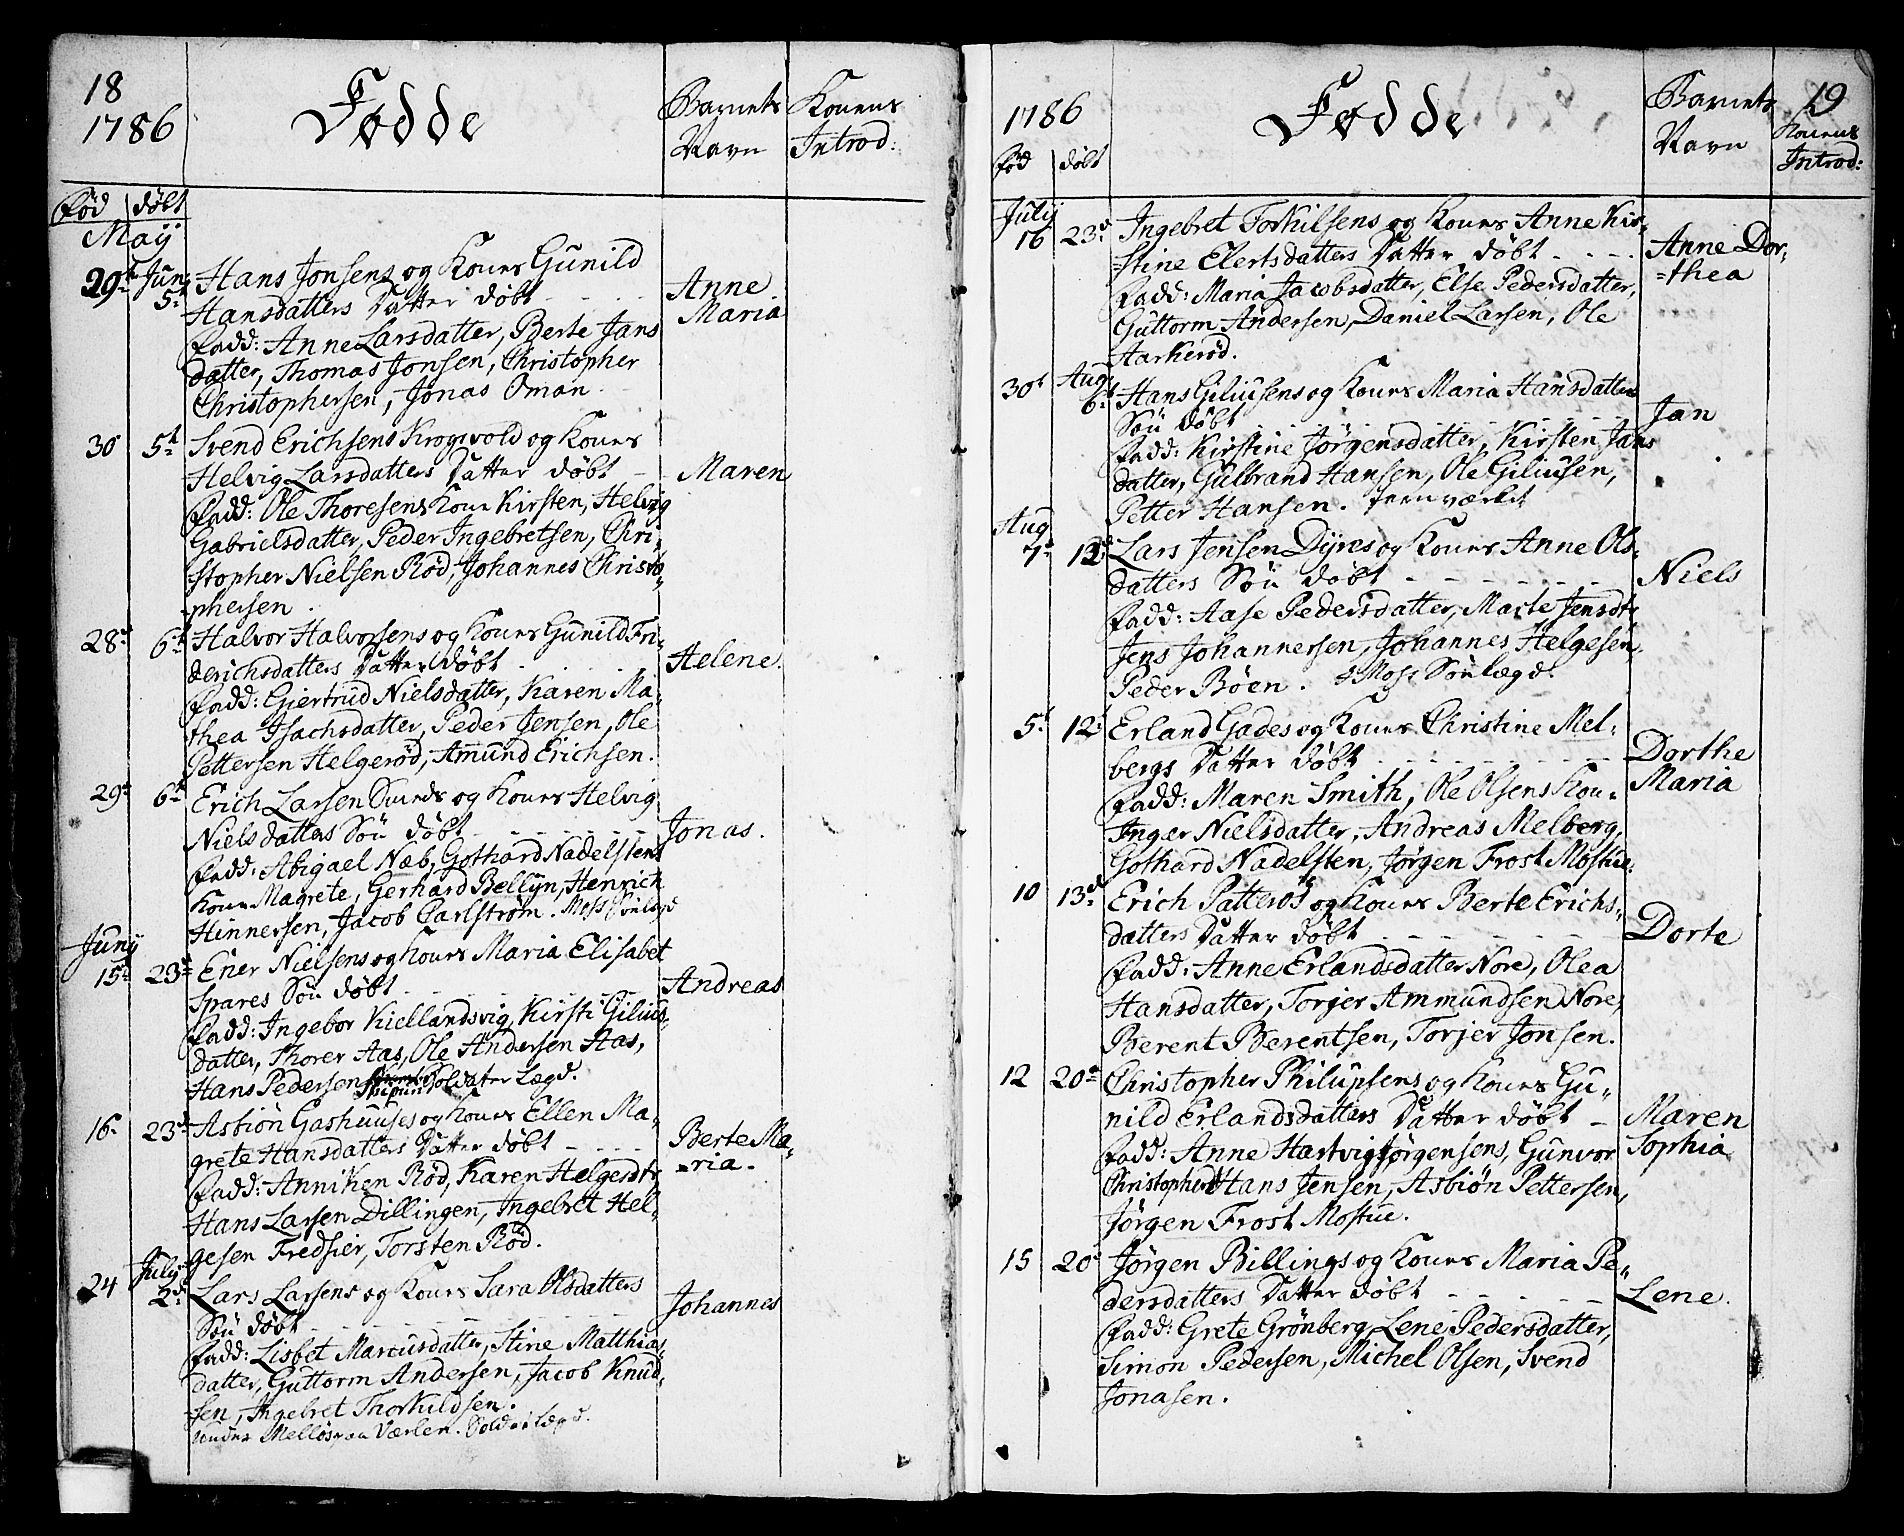 18
1786
Fødde
Barnets
Navn
Konens
Introd:
fød døbt
Maij
29t Jun. Hans Jonsens og Kones Gunild
5t Hansdatters Datter døbt - - - - Anne
Fadd: Anne Larsdatter, Berte Jans Maria
datter, Thomas Jonsen, Christopher
Christophersen, Jonas Oman
30 5t Svend Erichsens Krogsvold og Kones
Helvig Larsdatters Datter døbt - Maren
Fadd: Ole Thoresens Kone Kirsten, Helvig
Gabrielsdatter, Peder Ingebretsen, Chri-
stopher Nielsen Rød, Johannes Christo-
phersen.
28t 6t Halvor Halvorsens og Kones Gunild Fri-
derichsdatters Datter døbt - - - - Helene.
Fadd: Giertrud Nielsdatter, Karen Ma-
thea Isachsdatter, Peder Jensen, Ole
Pettersen Helgerød, Amund Erichsen.
29t 6t Erich Larsen Smeds og Kones Helvig
Nielsdatters Søn døbt - - - - - - Jonas.
Fadd: Abigael Næb, Gothard Nadelstens
Kone Magrete, Gerhard Bellyn, Henrich
Hinnersen, Jacob Carlstrøm. Moss Sønlægd
Junij
15t 23d Ener Nielsens og Kones Maria Elisabet
Spares Søn døbt - - - - - - Andreas
Fadd: Ingebor Kiellandsvig, Kirsti Gilius-
datter, Thorer Aas, Ole Andersen Aas,
Hans Pedersen Soldater Lægd.
16t 23d Asbiön Gashuuses og Kones Ellen Ma-
grete Hansdatters Datter døbt - - - - Berte Ma-
Fadd: Anniken Rød, Karen Helgesdtr =ria.
Hans Larsen Dillingen, Ingebret Hel-
gesen Fredsier, Torsten Rød.
24 July
2d Lars Larsens og Kones Sara Olsdatters
Søn døbt - - - - - - Johannes
Fadd: Lisbet Marcusdatter, Stine Matthia-
datter, Guttorm Andersen, Jacob Knud-
sen, Ingebret Thorkildsen.
under Melløs paa Værlen. Soldat Lægd.
1786
Fødde
Barnets
Navn
19
Konens
Introd:
fød døbt
July
16 23d Ingebret Torkilsens og Kones Anne Kir-
=stine Elertsdatters Datter døbt - - - - Anne Dor-
Fadd: Maria Jacobsdatter, Else Pedersdatter, =thea
Guttorm Andersen, Daniel Larsen, Ole
Aarkerød.
30t Aug
6t Hans Giliusens og Kones Maria Hansdatters
Søn døbt - - - - - - Jan
Fadd: Kirstine Jørgensdatter, Kirsten Jans
datter, Gulbrand Hansen, Ole Giliusen,
Petter Hansen. Jernværket
Aug
7t 12t Lars Jensen Dyres og Kones Anne Ols-
datters Søn døbt - - - - - - Niels
Fadd: Aase Pedersdatter, Marte Jensdtr
Jens Johannersen, Johannes Helgesen,
Peder Böen. Moss Sønlægd.
5t 12t Erland Gades og Kones Christine Mel-
bergs Datter døbt - - - - - - Dorthe
Fadd: Maren Smith, Ole Olsens Kone Maria
Inger Nielsdatter, Andreas Melberg,
Gothard Nadelsten, Jørgen Frost Mostue.
10 13d Erich Patterøs og Kones Berte Erichs-
datters Datter døbt - - - - - - Dorte
Fadd: Anne Erlandsdatter Nore, Olea
Hansdatter, Torjer Ammundsen Nore,
Berent Berentsen, Torjer Jonsen.
12 20d Christopher Philupsens og Kones Gu-
nild Erlandsdatters Datter døbt - Maren
Fadd: Anne Hartvig Jørgensens, Gunvor Sophia
Christophersd Hans Jensen, Asbiön Pettersen,
Jørgen Frost Mostue.
15 20d Jørgen Billings og Kones Maria Pe-
dersdatters Datter døbt - - - - - - Lene.
Fadd: Grete Grönberg, Lene Pedersdatter,
Simon Pedersen, Michel Olsen, Svend
Jonasen.